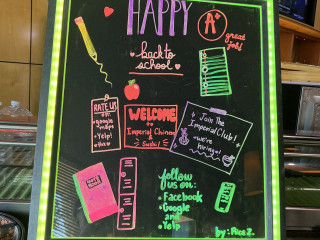 HAPPY
A+
great
job!
back to
school
RATE US
on:
google
maps
Yelp!
WELCOME
to
Imperial Chinese
& Sushi!
Join The
Imperial Club!
we're
hiring
follow
us on:
Facebook
Google
and
Yelp
by: Rica Z.